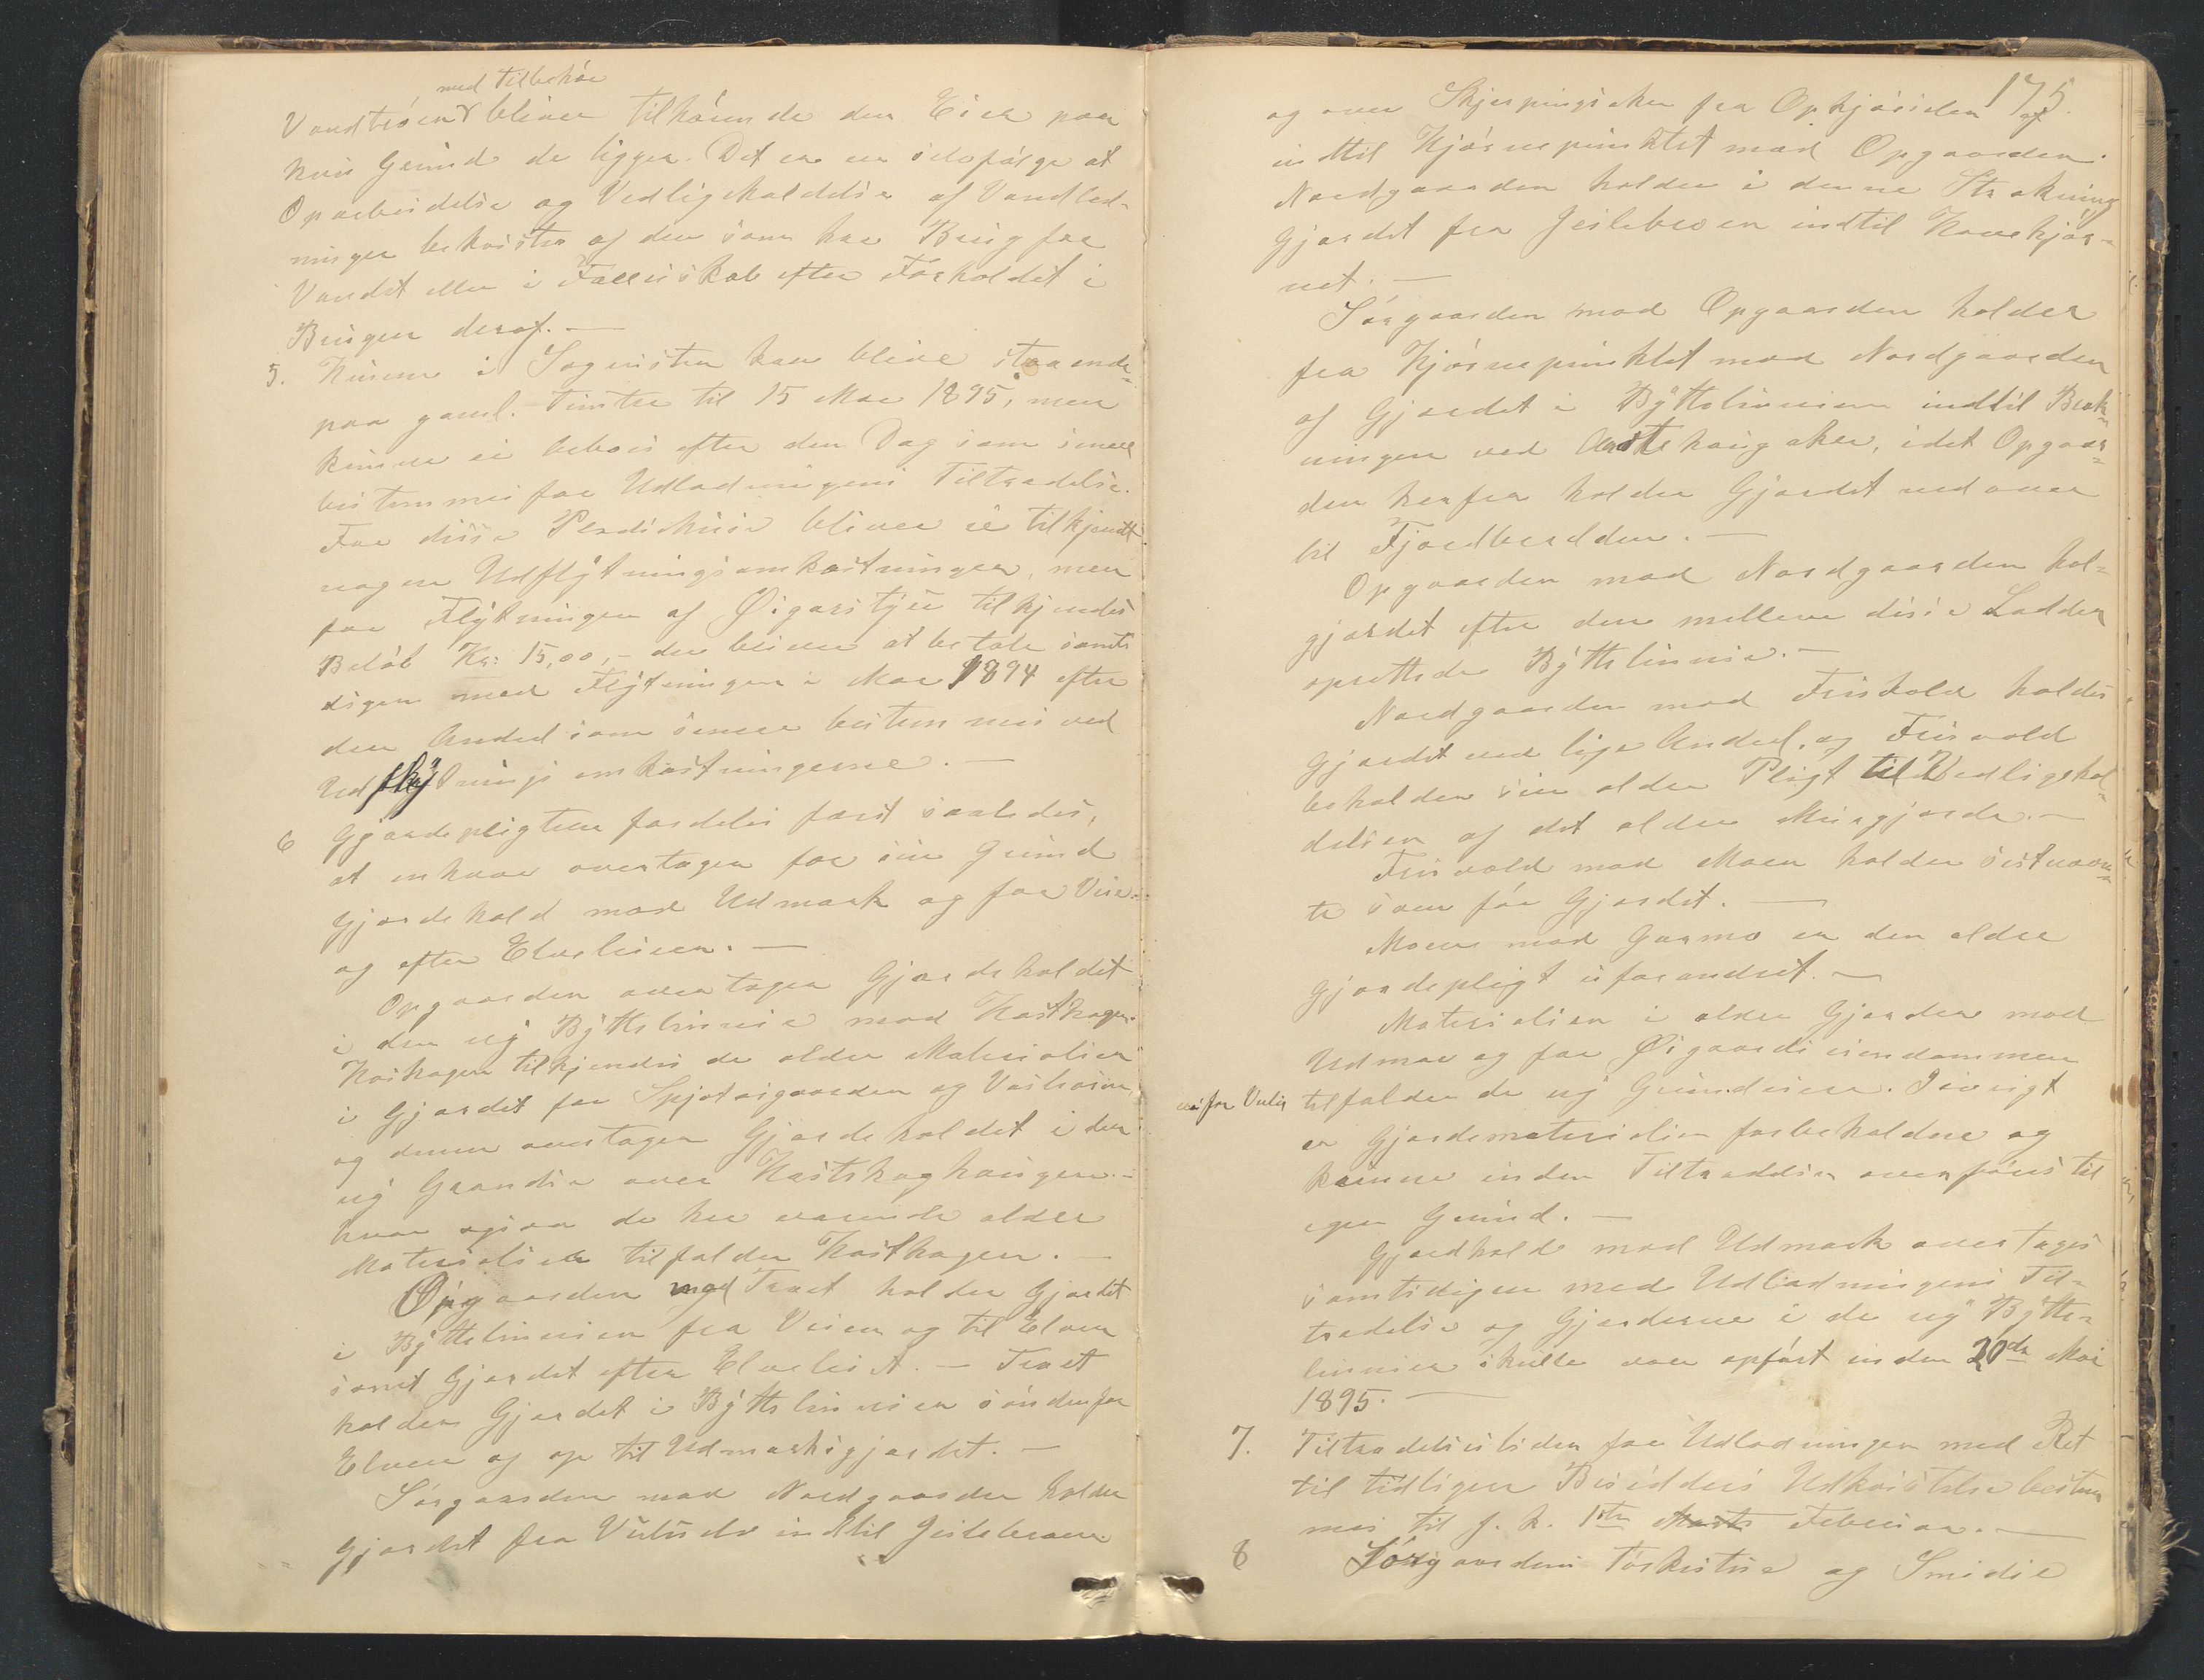 med Tilbehör
Vandtröer bliver tilhörende den Eier paa
hvis Grund de ligger. Det er en selvfölge at
Oparbeidelse og Vedligeholdelse af Vandled-
ninger bekostes af den som har Brug for
Vandet eller i Fællesskab efter Forholdet i
Brugen deraf. —
5. Husene i Sognstun kan blive staaende
paa gaml. Tomter til 15 Mai 1895, men
kunne ei beboes efter den Dag som senere
bestemmes for Udlodningens Tiltrædelse.
For disse Pladshuse bliver ei tilkjendt
nogen Udflytningsomkostninger, men
for Flytningen af Øigarstue tilkjendes
Beløb Kr: 15,00,- der bliver at betale samti-
digen med Flytningen i Mai 1894 efter
den Andel som senere bestemmes ved
Udskiftningsomkostningerne. —
6 Gjærdepligten fordeles først saaledes,
at enhver overtager for sin Grund
Gjærdehold mod Udmark og for Veie
og efter Elveleien. —
Opgaarden overtager Gjærdeholdet
i den ny Byttelinnie mod Kosthagen.
Kosthagen tilkjendes de ældre Materialier
i Gjærdet for
og denne overtager Gjærdeholdet i den
ny Grændse over Kosthaghaugen. -
hvor ogsaa de her værende ældre
Materialier tilfalder Kosthagen. —
Opgaarden mod Træet holder Gjærdet
i Byttelinnien fra Veien og til Elven
samt Gjærdet efter Elveleiet. — Træet
holder Gjærdet i Byttelinnien söndenfor
Elven og op til Udmarksgjærdet. —
Sörgaarden mod Nordgaarden holder
Gjærdet fra indtil Jeilebroen
175.
og over Skjerpingsaker fra Opkjörselen af
indtil Hjörnepunktet mod Opgaarden.
Nordgaarden holder i denne Strækning
Gjærdet fra Jeilebroen indtil Havehjör-
net. —
Sörgaarden mod Opgaarden holder
fra Hjörnepunktet mod Nordgaarden
af Gjærdet i Byttelinnien indtil Bræk-
ningen ved idet Opgaar-
den herfra holder Gjærdet nedover
til Fjordbredden. —
Opgaarden mod Nordgaarden hol-
gjærdet efter den mellem disse Lodder
oprettede Byttelinnie. —
Nordgaarden mod Frisvold holdes
Gjærdet med lige Andel, og Frisvold
beholder sin ældre Pligt til Vedligehol-
delsen af det ældre Murgjærde. —
Frisvold mod Moen holder sistnævn-
te som för Gjærdet. —
Moen mod Garmo er den ældre
Gjærdepligt uforandret. —
Materialier i ældre Gjærder mod
Udmar og for Øigaardseiendommen
tilfalder de ny Grundeiere. Iövrigt
er Gjærdematerialier forbeholdne og
kunne inden Tiltrædelsen overföres til
egen Grund. —
Gjærdhold mod Udmark overtages
samtidigen med Udlodningens Til-
trædelse og Gjærderne i de ny Bytte-
linnier skulle være opfört inden 20de Mai
1895. —
7. Tiltrædelsestiden for Udlodningen med Ret
til tidligere Besidders Udkastelse bestem-
mes til f. k. 1ste Marts Februar. —
8 Sörgaardens Törkestue og Smidie